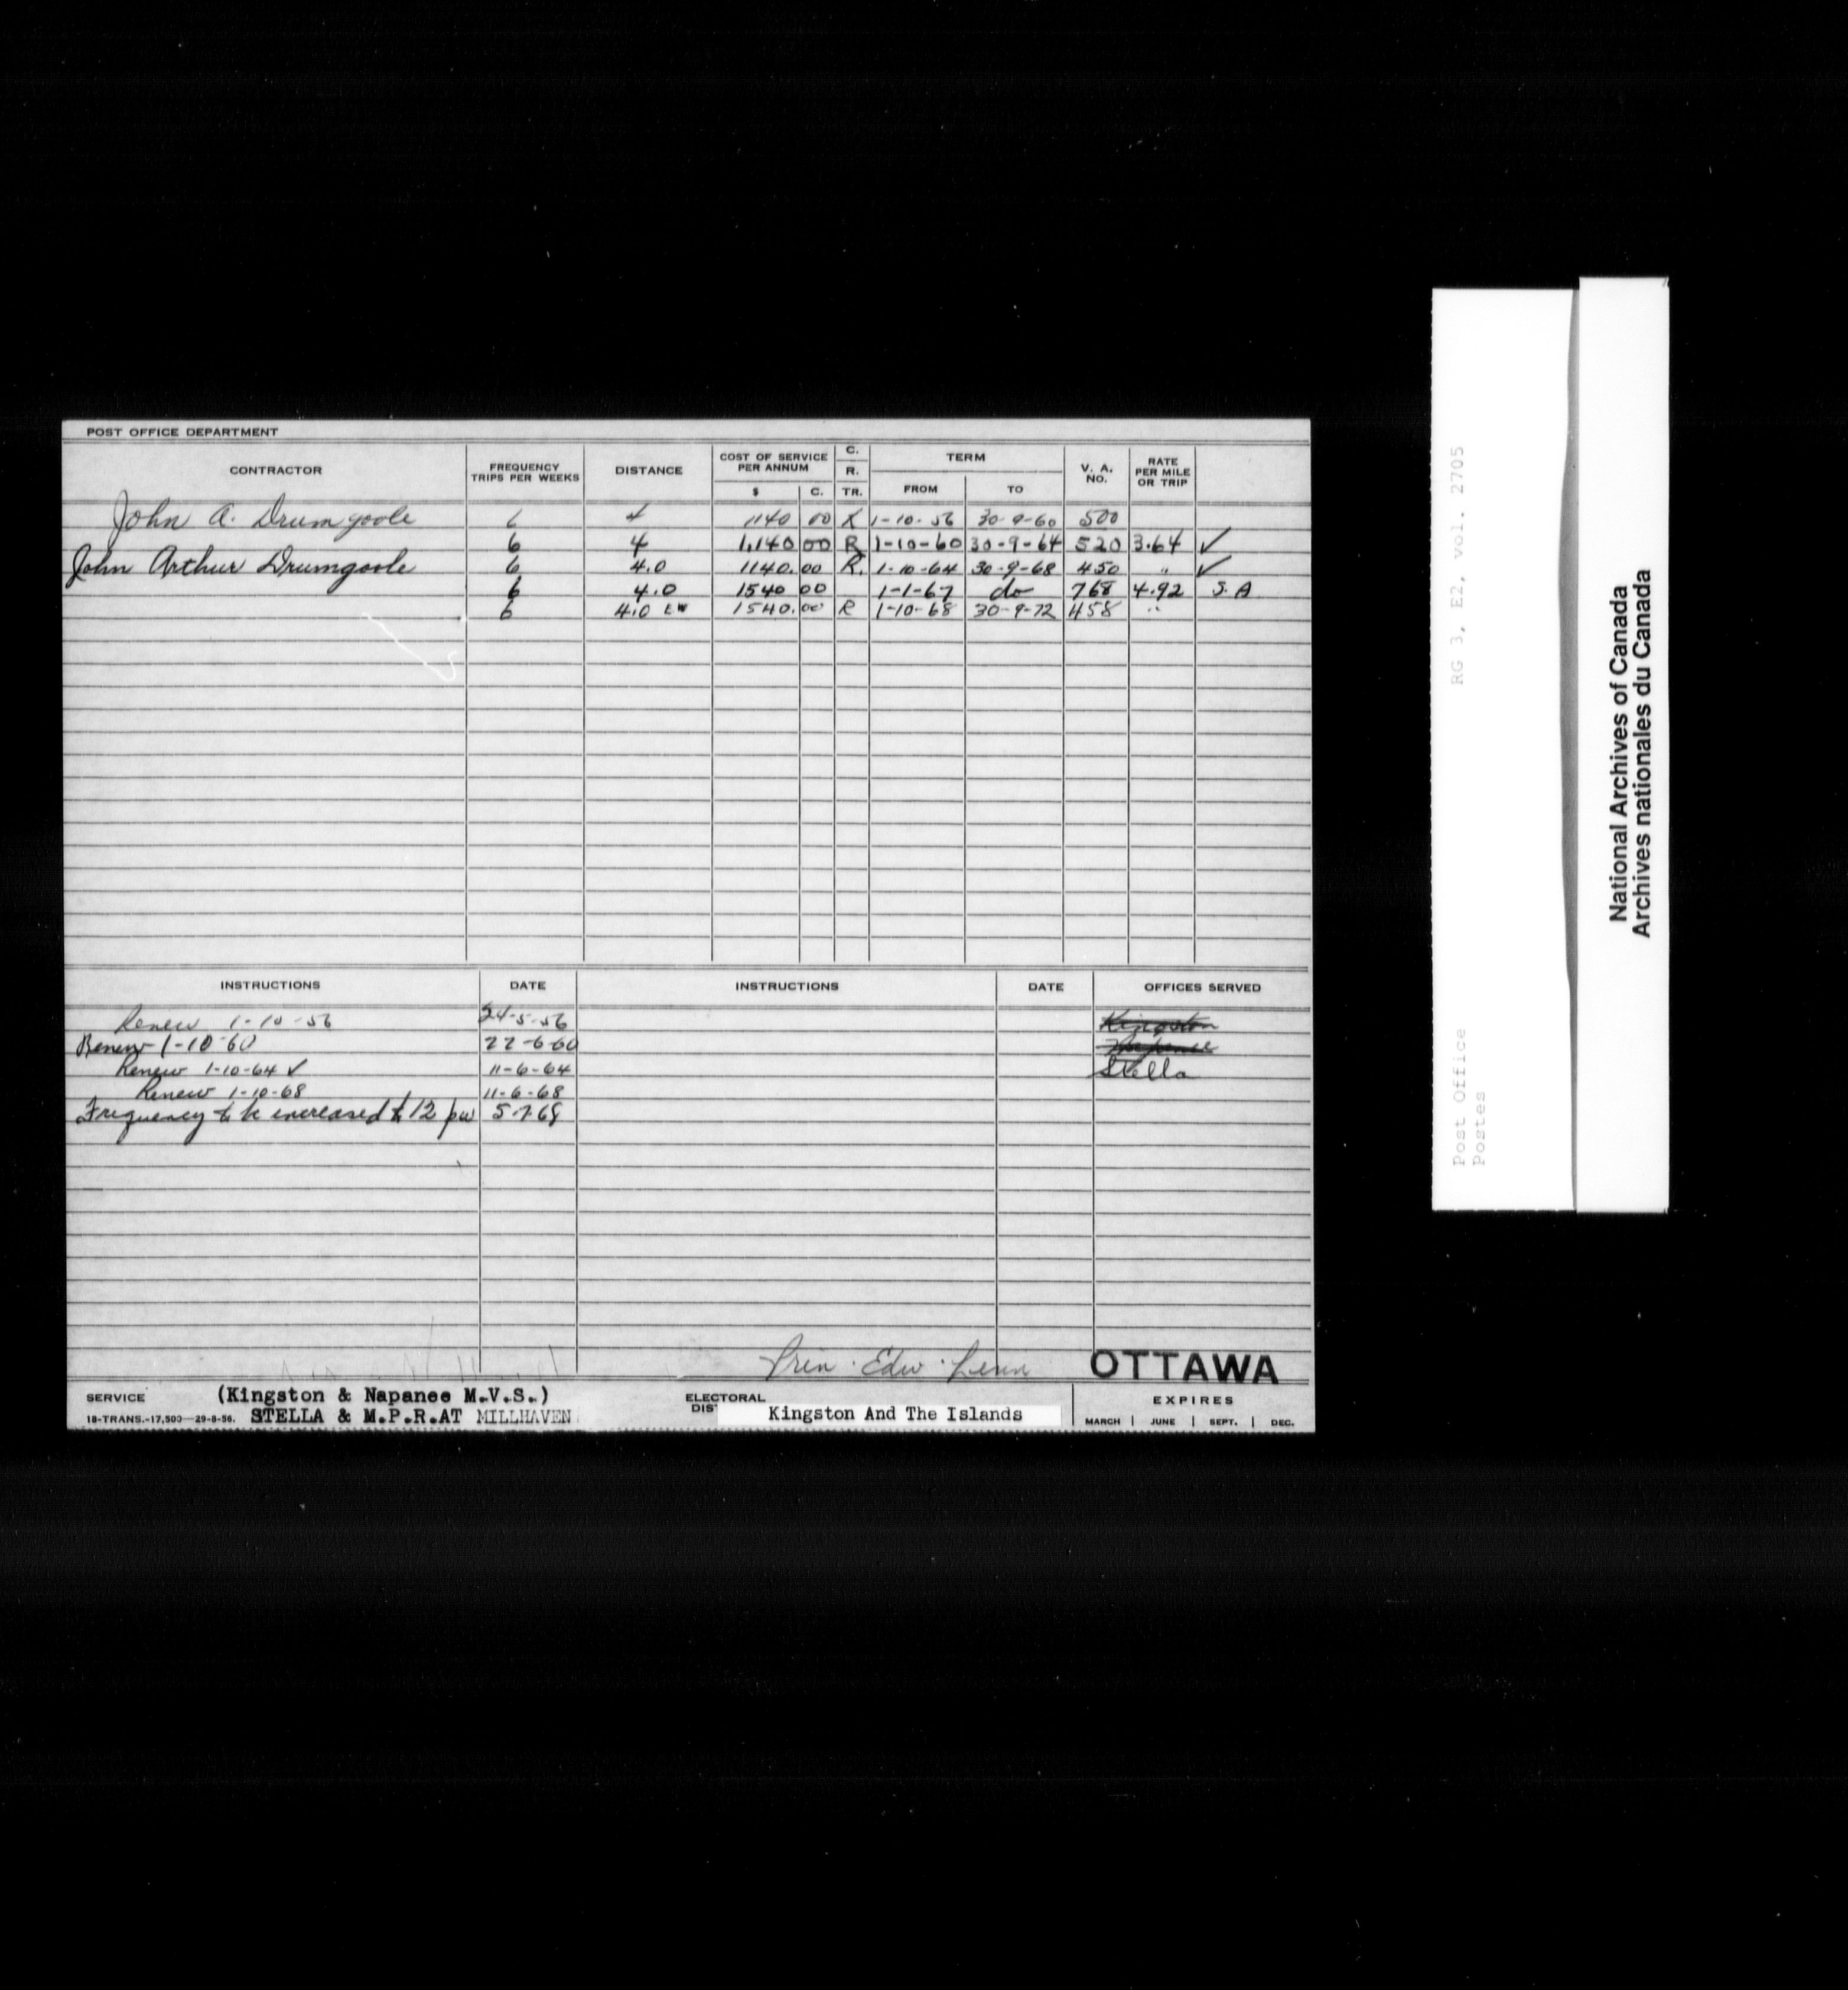 POST OFFICE DEPARTMENT
CONTRACTOR FREQUENCY TRIPS PER WEEKS DISTANCE COST OF SERVICE PER ANNUM $ C. C. R. TR. TERM FROM TO V. A. NO. RATE PER MILE OR TRIP
John A. Drumgoole 6 4 1140 00 R 1-10-56 30-9-60 500
6 4 1,140 00 R 1-10-60 30-9-64 520 3.64 ✓
John Arthur Drumgoole 6 4.0 1140.00 R. 1-10-64 30-9-68 450 " ✓
6 4.0 1540 00 1-1-67 do 768 4.92 S.A
6 4.0 EW 1540.00 R 1-10-68 30-9-72 458 "
INSTRUCTIONS DATE INSTRUCTIONS DATE OFFICES SERVED
Renew 1-10-56 24-5-56 Kingston
Renew 1-10-60 22-6-60 Napanee
Renew 1-10-64 ✓ 11-6-64 Stella
Renew 1-10-68 11-6-68
Frequency to be increased to 12 pw 5-7-68
Prin. Edw. Lenn
OTTAWA
SERVICE (Kingston & Napanee M.V.S.)
18-TRANS.-17,500-29-8-56. STELLA & M.P.R.AT MILLHAVEN
ELECTORAL
DIS Kingston And The Islands
EXPIRES
MARCH | JUNE | SEPT. | DEC.
RG 3, E2, vol. 2705
Post Office
Postes
National Archives of Canada
Archives nationales du Canada